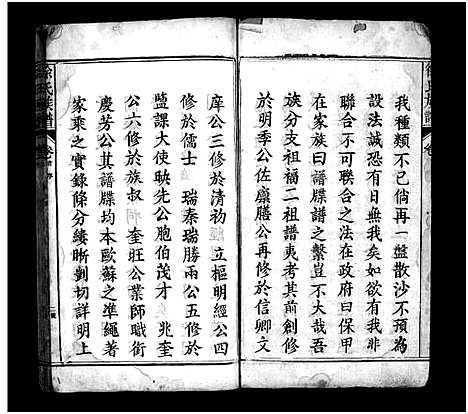 徐氏族譜
我種類不已倘再一盤散沙不預為
設法誠恐有日無我矣如欲有我非
聯合不可聯合之法在政府曰保甲
在家族曰譜牒譜之繫豈不大哉吾
族分支祖福二祖譜夷考其前創修
於明季公佐廩膳公再修於信卿文
庠公三修於清初 立樞明經公四
修於儒士 瑞泰瑞勝兩公五修於
監課大使映先公胞伯茂才 兆奎
公六修於族叔 奎旺公業師職銜
慶芳公其譜牒均本歐蘇之準繩著
家乘之實錄條分縷晰劃切詳明上
徐氏族譜